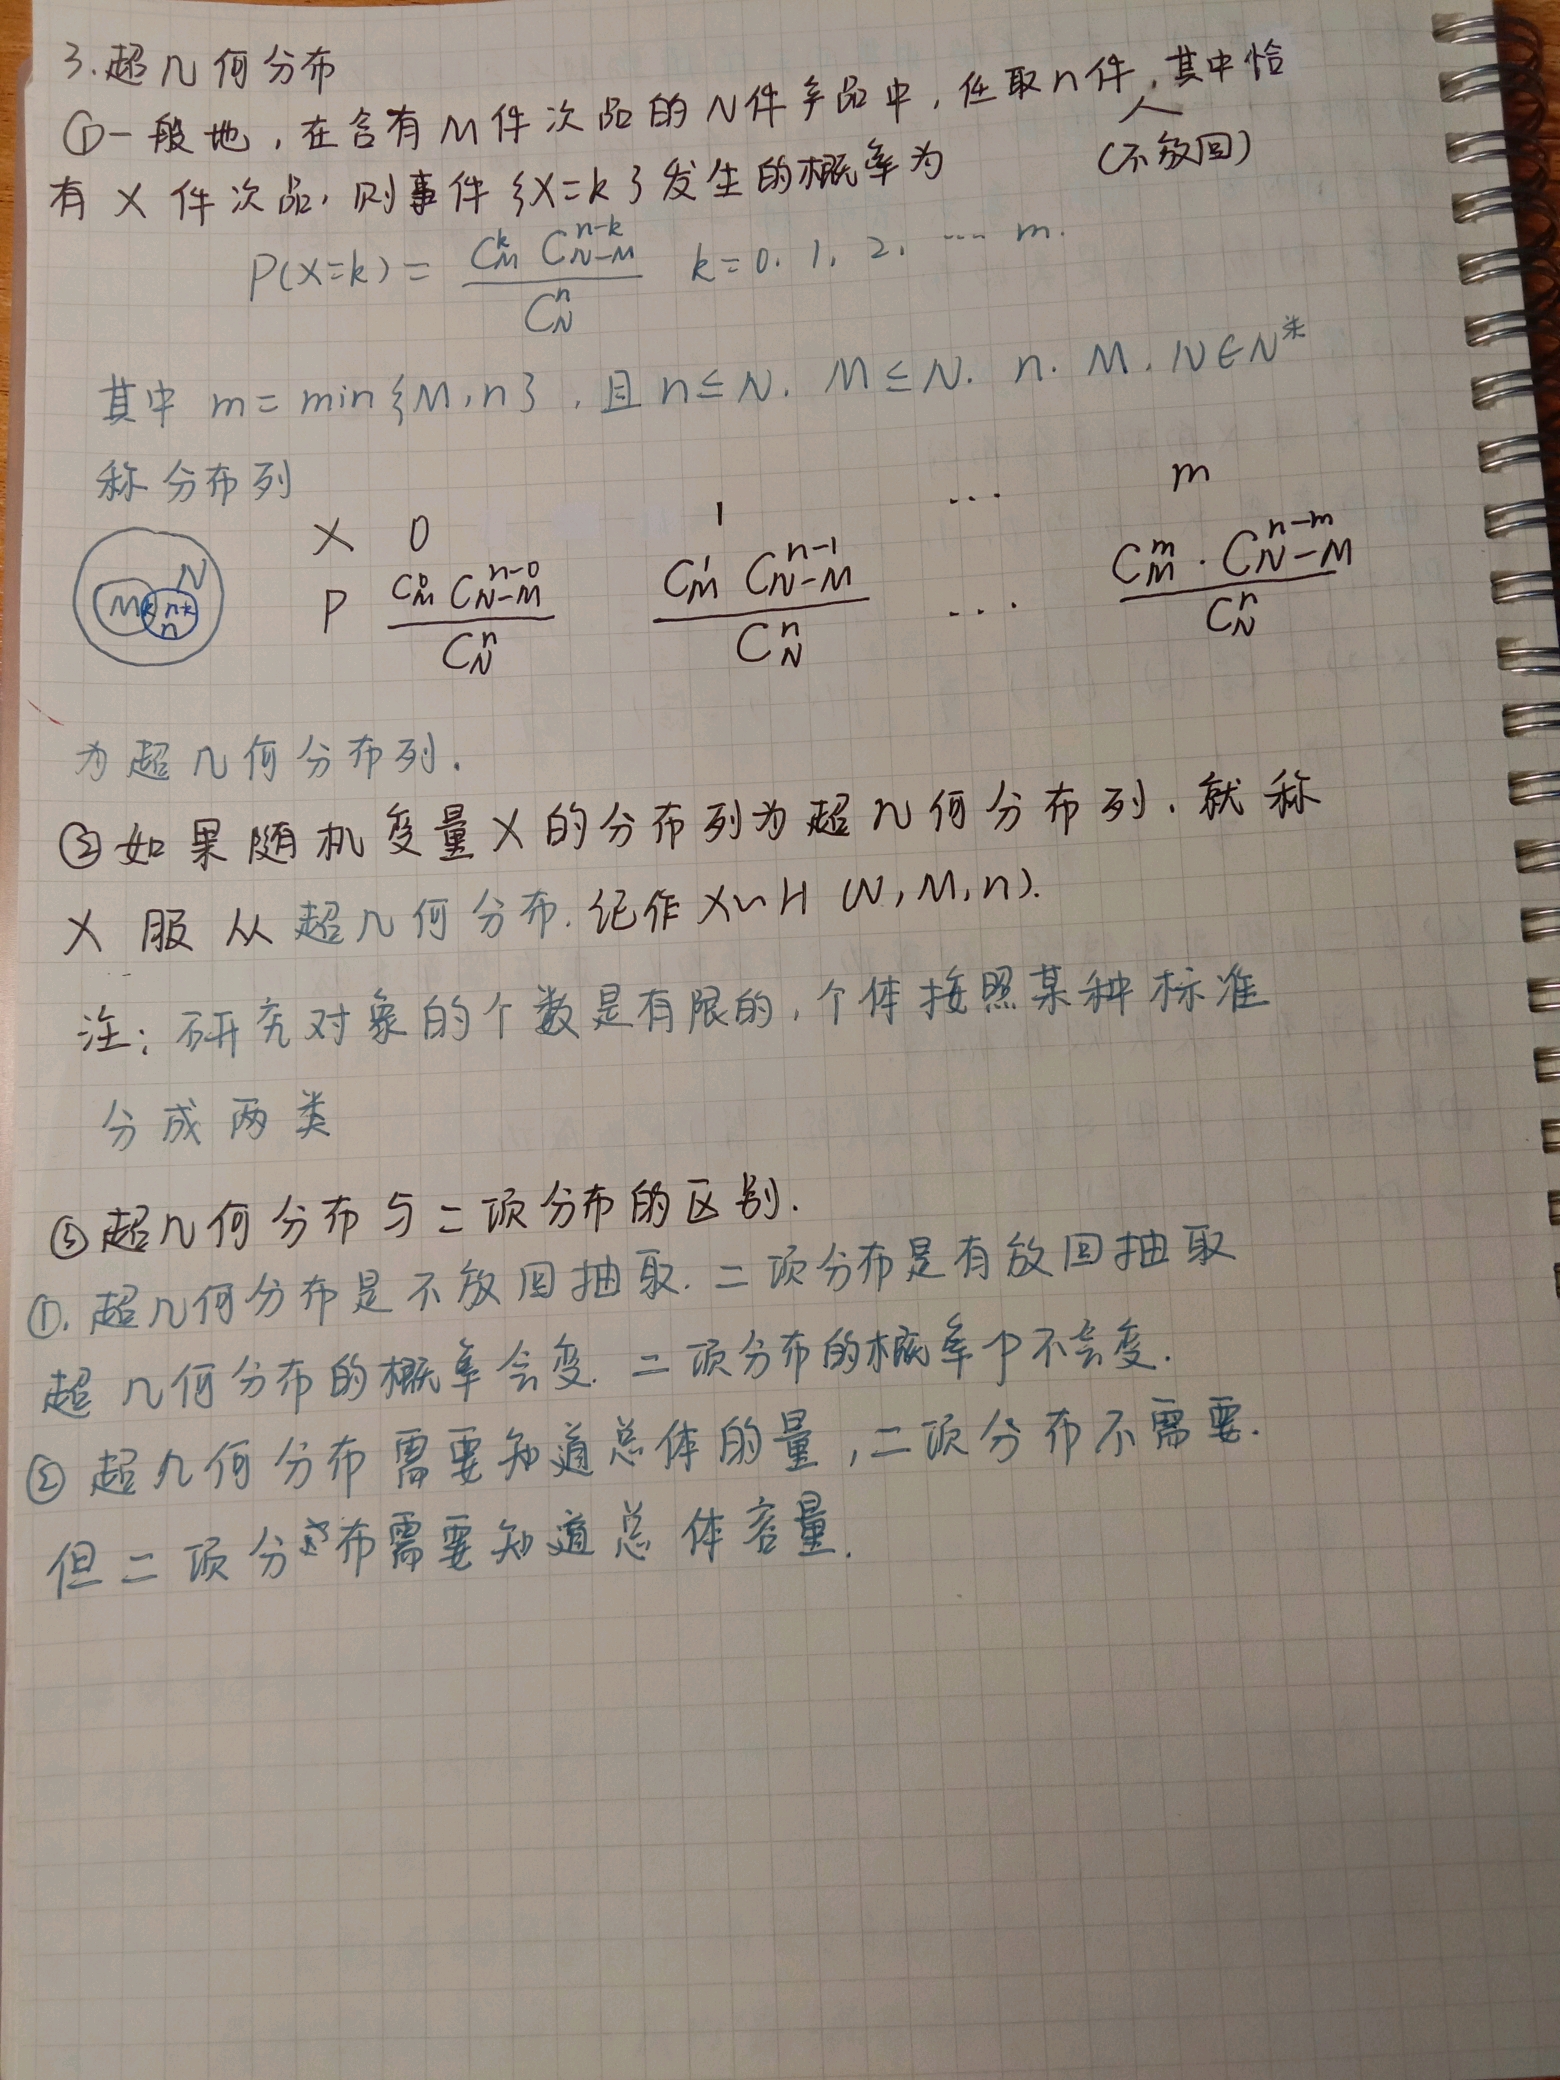 3.超几何分布
①一般地，在含有M件次品的N件产品中，任取n件，其中恰
(不放回)
有X件次品，则事件{X=k}发生的概率为
P(X=k)= C_M^k C_{N-M}^{n-k} / C_N^n k=0.1.2.……m.
其中 m=min{M,n}，且n≤N. M≤N. n.M.N∈N*
称分布列
X 0 1 … m
P C_M^0 C_{N-M}^{n-0} / C_N^n C_M^1 C_{N-M}^{n-1} / C_N^n … C_M^m · C_{N-M}^{n-m} / C_N^n
N M k n-k n
为超几何分布列.
②如果随机变量X的分布列为超几何分布列.就称
X服从超几何分布.记作X~H(N,M,n).
注：研究对象的个数是有限的，个体按照某种标准
分成两类
③超几何分布与二项分布的区别.
①.超几何分布是不放回抽取.二项分布是有放回抽取
超几何分布的概率会变.二项分布的概率中不会变.
②超几何分布需要知道总体的量，二项分布不需要.
但二项分布需要知道总体容量.